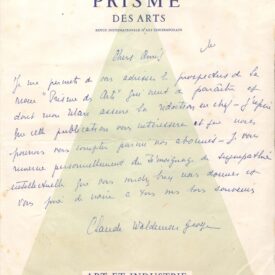 PRISME
DES ARTS
REVUE INTERNATIONALE D'ART CONTEMPORAIN
Cher Ami,
Je me permets de vous adresser le prospectus de la
revue "Prisme des Arts" qui vient de paraître et
dont mon mari assure la rédaction en chef – J'espère
que cette publication vous intéressera et que nous
pourrons vous compter parmi nos abonnés – Je vous
remercie personnellement du témoignage de sympathie
intellectuelle que vous nous donner et
vous prie de croire à tous mes bons souvenirs
Claude
ART ET INDUSTRIE